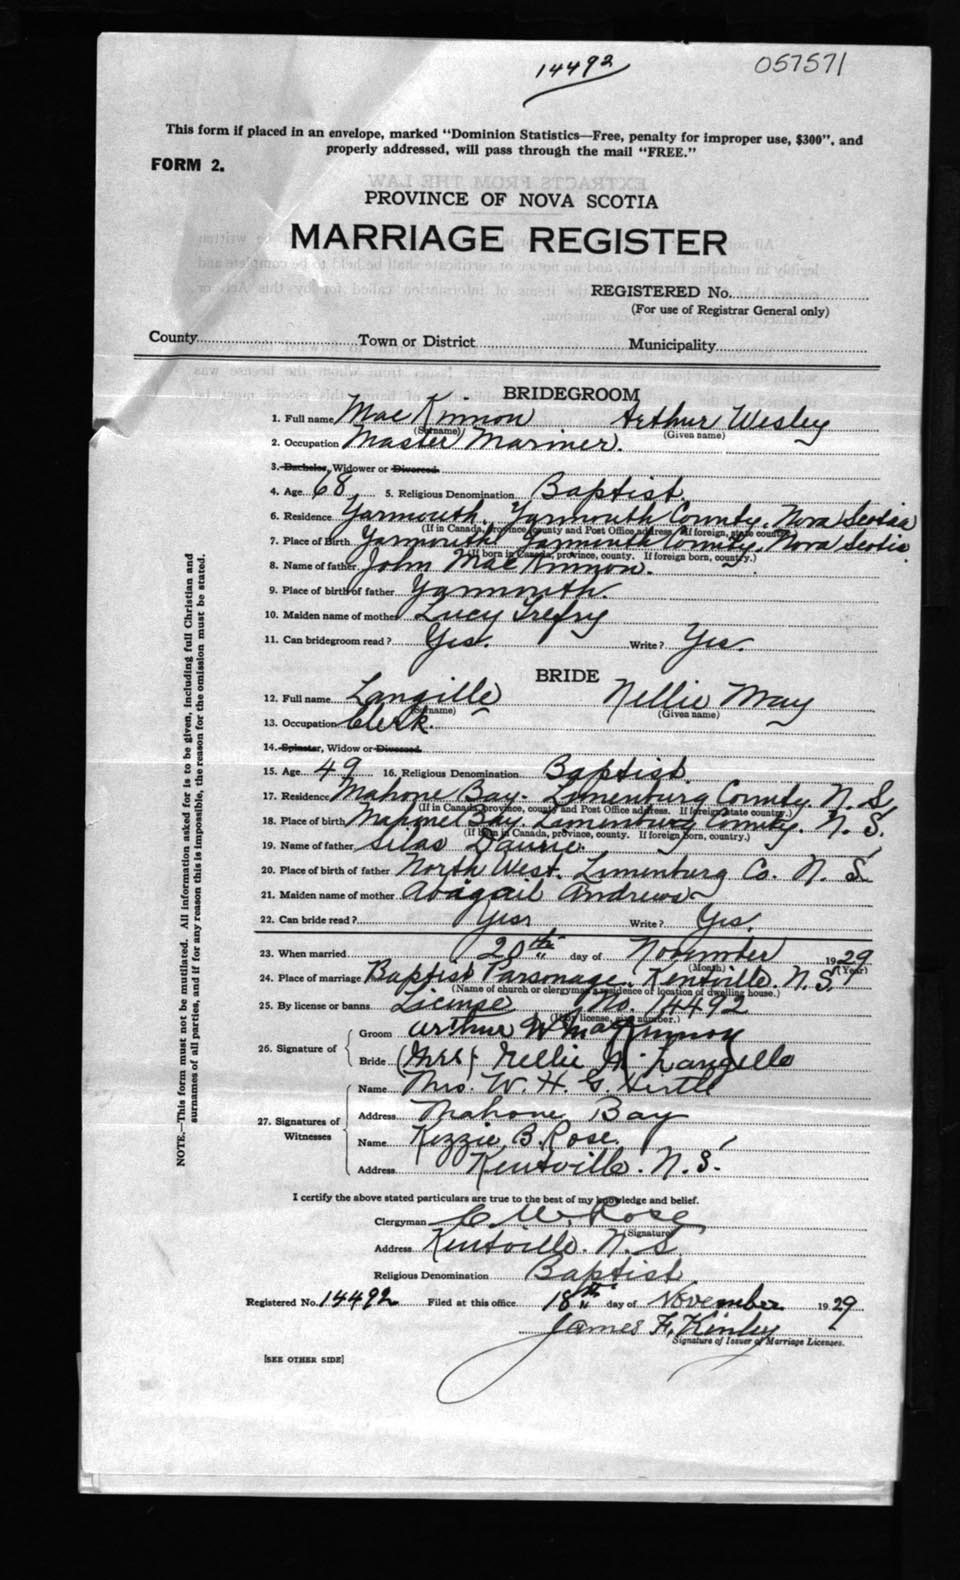 14492
057571
This form if placed in an envelope, marked "Dominion Statistics—Free, penalty for improper use, $300", and
properly addressed, will pass through the mail "FREE."
FORM 2.
PROVINCE OF NOVA SCOTIA
MARRIAGE REGISTER
REGISTERED No.
(For use of Registrar General only)
County Town or District Municipality
BRIDEGROOM
1. Full name MacKinnon Arthur Wesley
(Surname) (Given name)
2. Occupation Master Mariner.
3. Bachelor, Widower or Divorced.
4. Age 68 5. Religious Denomination Baptist.
6. Residence Yarmouth. Yarmouth County. Nova Scotia
(If in Canada, province, county and Post Office address. If foreign, state country.)
7. Place of Birth Yarmouth Yarmouth County. Nova Scotia
(If born in Canada, province, county. If foreign born, country.)
8. Name of father John MacKinnon.
9. Place of birth of father Yarmouth.
10. Maiden name of mother Lucy Trefry
11. Can bridegroom read? Yes. Write? Yes.
BRIDE
12. Full name Langille Nellie May
(Surname) (Given name)
13. Occupation Clerk.
14. Spinster, Widow or Divorced.
15. Age 49 16. Religious Denomination Baptist.
17. Residence Mahone Bay. Lunenburg County. N. S.
(If in Canada, province, county and Post Office address. If foreign state country.)
18. Place of birth Mahone Bay. Lunenburg County. N. S.
(If born in Canada, province, county. If foreign born, country.)
19. Name of father Silas Daurie.
20. Place of birth of father North West. Lunenburg Co. N. S.
21. Maiden name of mother Abigail Andrews
22. Can bride read? Yes. Write? Yes.
23. When married 20th day of November 1929
(Month) (Year)
24. Place of marriage Baptist Parsonage. Kentville. N. S.
(Name of church or clergyman's residence or location of dwelling house.)
25. By license or banns License No. 14492
(If by license, give number.)
26. Signature of Groom Arthur W MacKinnon
Bride (Mrs) Nellie M. Langille
27. Signatures of Witnesses Name Mrs. W. H. G. Hirtle
Address Mahone Bay
Name Kezzie B. Rose.
Address Kentville. N. S.
I certify the above stated particulars are true to the best of my knowledge and belief.
Clergyman C. W. Rose
(Signature)
Address Kentville. N. S.
Religious Denomination Baptist
Registered No. 14492 Filed at this office 18th day of November 1929
James F. Kinley
Signature of Issuer of Marriage Licenses.
[SEE OTHER SIDE]
NOTE.—This form must not be mutilated. All information asked for is to be given, including full Christian and
surnames of all parties, and if for any reason this is impossible, the reason for the omission must be stated.